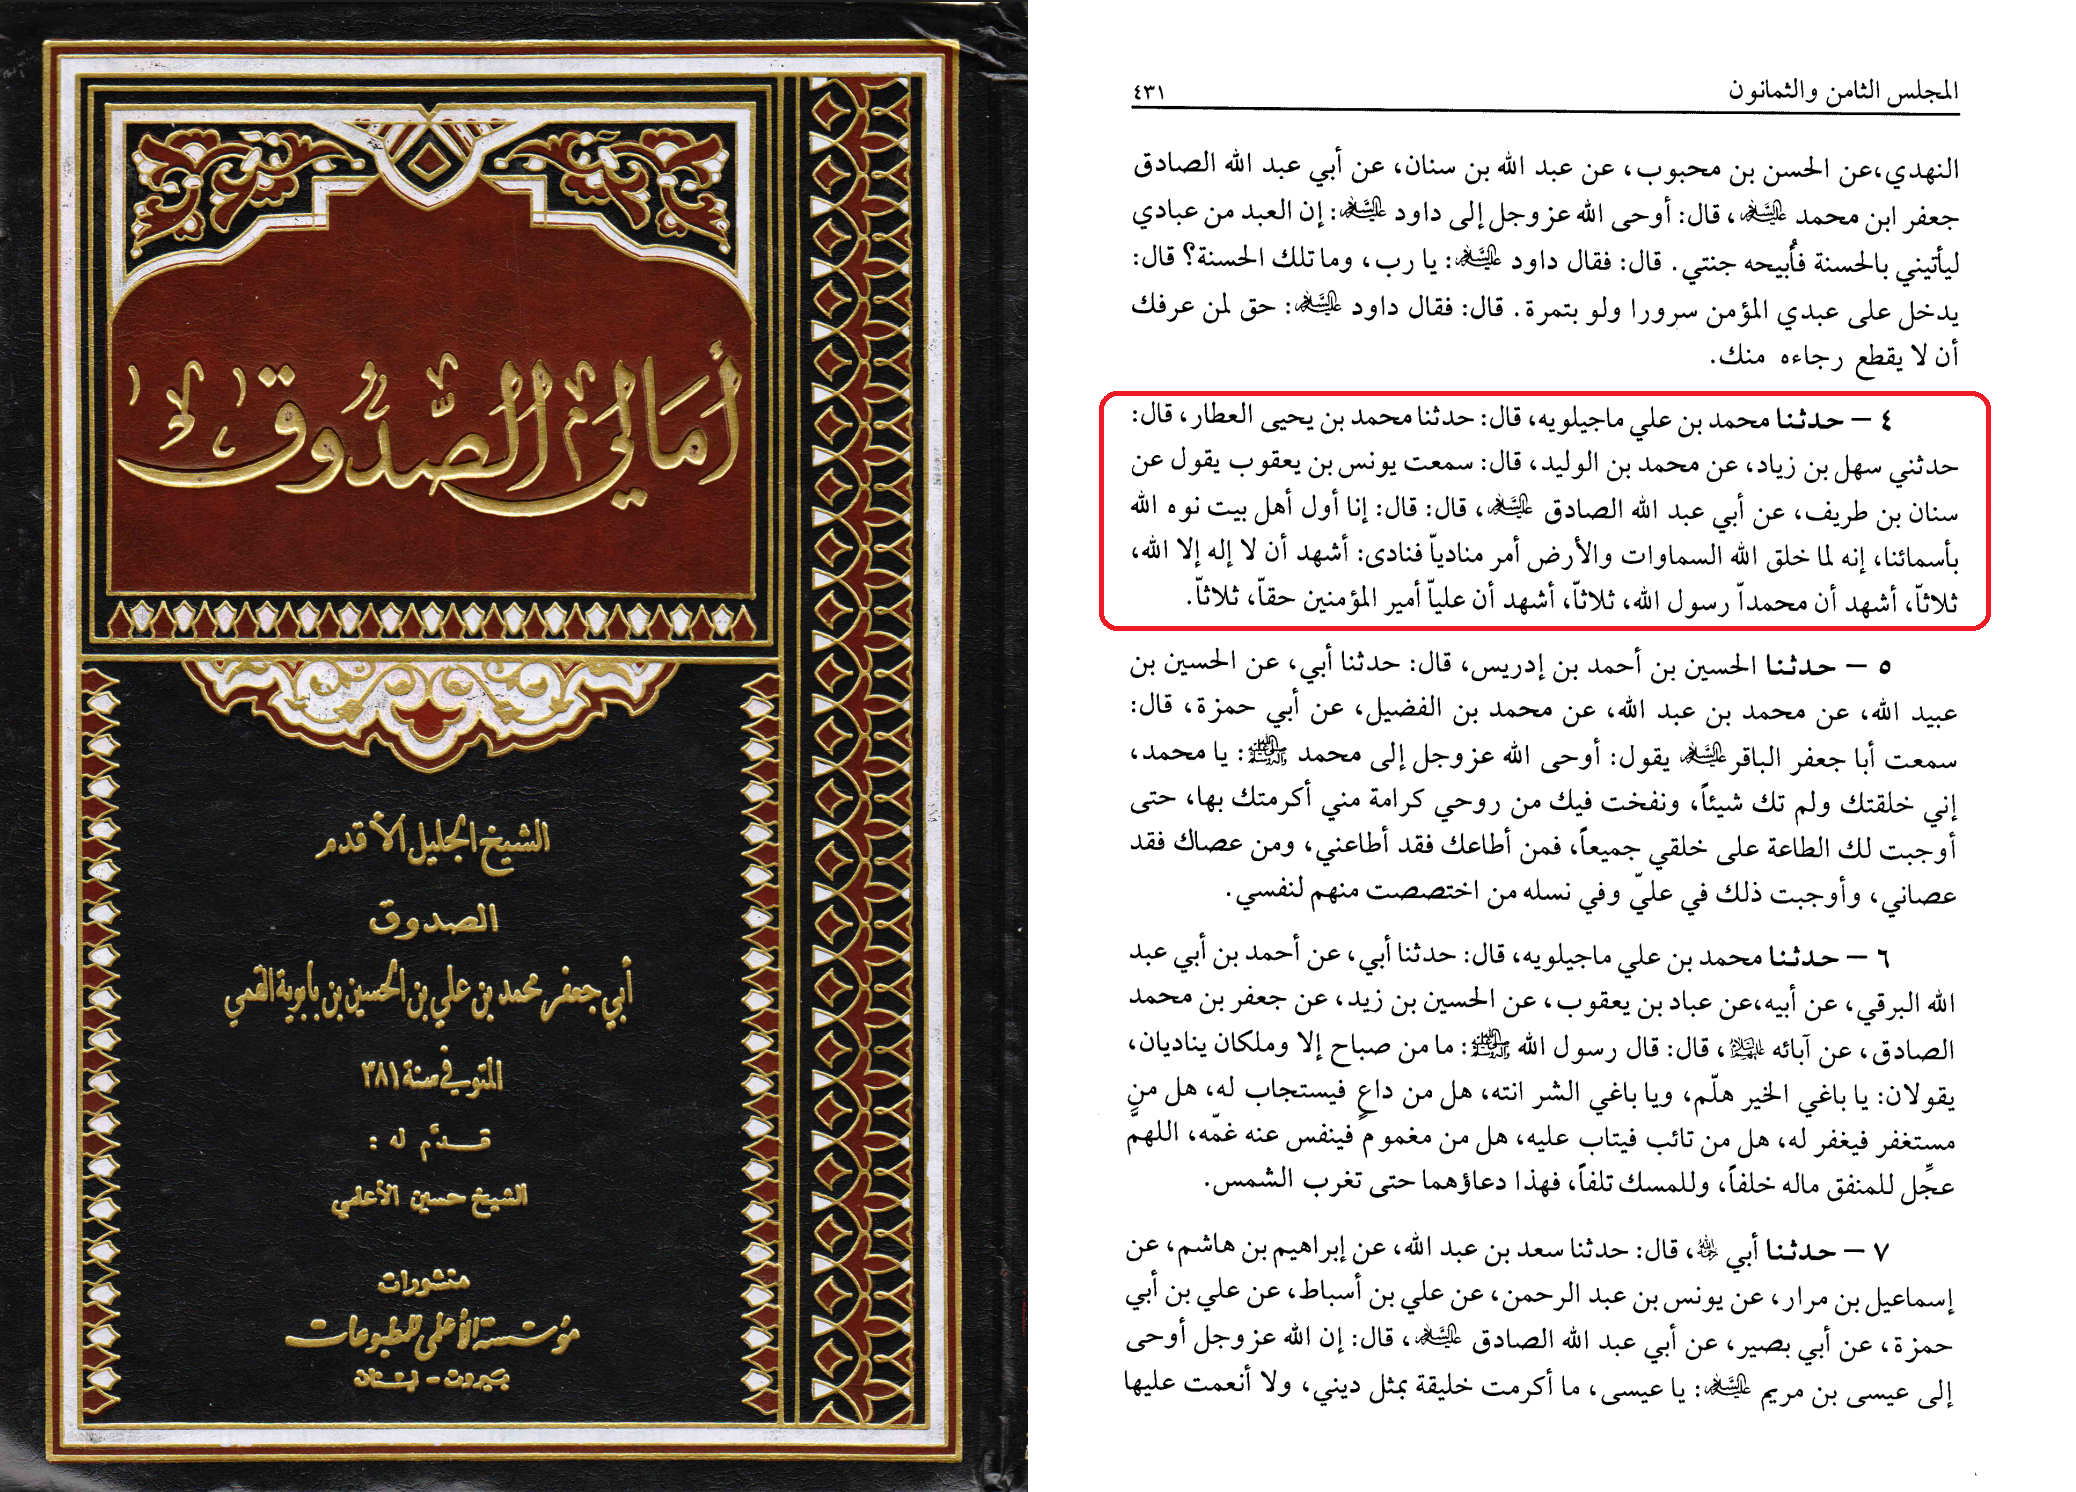 أمالي الصدوق
الشيخ الجليل الأقدم
الصدوق
أبي جعفر محمد بن علي بن الحسين بن بابوية القمي
المتوفى سنة ٣٨١
قدّم له :
الشيخ حسين الأعلمي
منشورات
مؤسسة الأعلى للمطبوعات
بيروت - لبنان
المجلس الثامن والثمانون ٤٣١
النهدي،عن الحسن بن محبوب، عن عبد الله بن سنان، عن أبي عبد الله الصادق
جعفر ابن محمد عليه السلام، قال: أوحى الله عزوجل إلى داود عليه السلام: إن العبد من عبادي
ليأتيني بالحسنة فأُبيحه جنتي. قال: فقال داود عليه السلام: يا رب، وما تلك الحسنة؟ قال:
يدخل على عبدي المؤمن سرورا ولو بتمرة. قال: فقال داود عليه السلام: حق لمن عرفك
أن لا يقطع رجاءه منك.
٤ – حدثنا محمد بن علي ماجيلويه، قال: حدثنا محمد بن يحيى العطار، قال:
حدثني سهل بن زياد، عن محمد بن الوليد، قال: سمعت يونس بن يعقوب يقول عن
سنان بن طريف، عن أبي عبد الله الصادق عليه السلام، قال: قال: إنا أول أهل بيت نوه الله
بأسمائنا، إنه لما خلق الله السماوات والأرض أمر منادياً فنادى: أشهد أن لا إله إلا الله،
ثلاثاً، أشهد أن محمداً رسول الله، ثلاثاً، أشهد أن علياً أمير المؤمنين حقاً، ثلاثاً.
٥ – حدثنا الحسين بن أحمد بن إدريس، قال: حدثنا أبي، عن الحسين بن
عبيد الله، عن محمد بن عبد الله، عن محمد بن الفضيل، عن أبي حمزة، قال:
سمعت أبا جعفر الباقر عليه السلام يقول: أوحى الله عزوجل إلى محمد صلى الله عليه وآله وسلم: يا محمد،
إني خلقتك ولم تك شيئاً، ونفخت فيك من روحي كرامة مني أكرمتك بها، حتى
أوجبت لك الطاعة على خلقي جميعاً، فمن أطاعك فقد أطاعني، ومن عصاك فقد
عصاني، وأوجبت ذلك في عليّ وفي نسله من اختصصت منهم لنفسي.
٦ – حدثنا محمد بن علي ماجيلويه، قال: حدثنا أبي، عن أحمد بن أبي عبد
الله البرقي، عن أبيه،عن عباد بن يعقوب، عن الحسين بن زيد، عن جعفر بن محمد
الصادق، عن آبائه عليهم السلام، قال: قال رسول الله صلى الله عليه وآله وسلم: ما من صباح إلا وملكان يناديان،
يقولان: يا باغي الخير هلّم، ويا باغي الشر انته، هل من داعٍ فيستجاب له، هل من
مستغفر فيغفر له، هل من تائب فيتاب عليه، هل من مغموم فينفس عنه غمّه، اللهمّ
عجِّل للمنفق ماله خلفاً، وللمسك تلفاً، فهذا دعاؤهما حتى تغرب الشمس.
٧ – حدثنا أبي رحمه الله، قال: حدثنا سعد بن عبد الله، عن إبراهيم بن هاشم، عن
إسماعيل بن مرار، عن يونس بن عبد الرحمن، عن علي بن أسباط، عن علي بن أبي
حمزة، عن أبي بصير، عن أبي عبد الله الصادق عليه السلام، قال: إن الله عزوجل أوحى
إلى عيسى بن مريم عليه السلام: يا عيسى، ما أكرمت خليقة بمثل ديني، ولا أنعمت عليها